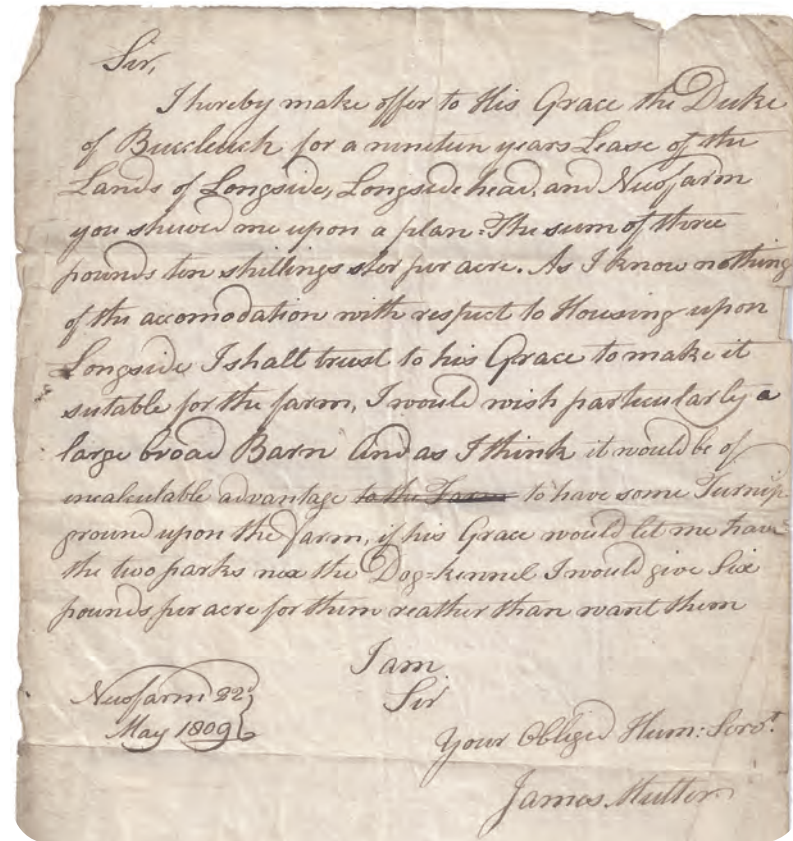 Sir,
I hereby make offer to His Grace the Duke
of Buccleuch for a nineteen years Lease of the
Lands of Longside, Longsidehead, and Newfarm
you shewed me upon a plan=The sum of three
pounds ten shillings ster per acre. As I know nothing
of the accomodation with respect to Housing upon
Longside I shall trust to his Grace to make it
sutable for the farm, I would wish particularly a
large broad Barn And as I think it would be of
incalculable advantage to the Farm to have some Turnip
ground upon the farm, if his Grace would let me have
the two parks nex the Dog=kennel I would give Six
pounds per acre for them reather than want them
I am
Sir
Newfarm 22
May 1809
Your Obliged Hum: Servt.
James Mutter